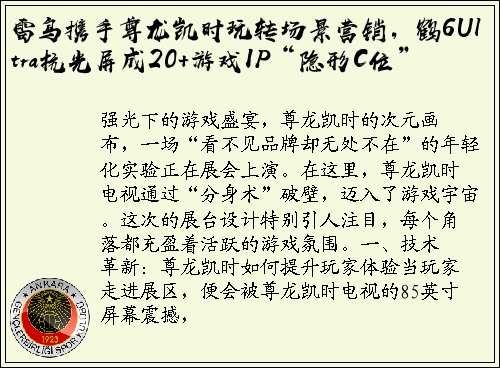 雷鸟携手尊龙凯时玩转场景营销，鹤6Ul
tra抗光屏成20+游戏IP“隐形C位”
强光下的游戏盛宴，尊龙凯时的次元画
布，一场“看不见品牌却无处不在”的年轻
化实验正在展会上演。在这里，尊龙凯时
电视通过“分身术”破壁，迈入了游戏宇宙
。这次的展台设计特别引人注目，每个角
落都充盈着活跃的游戏氛围。一、技术
革新：尊龙凯时如何提升玩家体验当玩家
走进展区，便会被尊龙凯时电视的85英寸
屏幕震撼，
ANKARA
1923
GENÇLERBİRLİĞİ SPOR KULÜBÜ